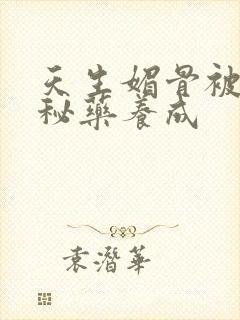 天生媚骨被
秘藥養成
袁潛華